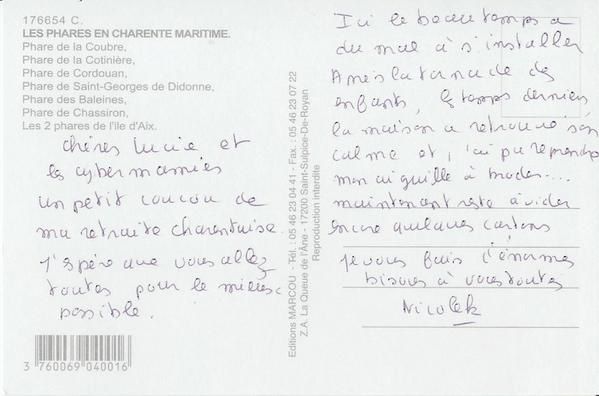 176654 C.
LES PHARES EN CHARENTE MARITIME.
Phare de la Coubre,
Phare de la Cotinière,
Phare de Cordouan,
Phare de Saint-Georges de Didonne,
Phare des Baleines,
Phare de Chassiron,
Les 2 phares de l'ile d'Aix.
chères Lucie et
les cybermamies
un petit coucou de
ma retraite charentaise.
J'espère que vous allez
toutes pour le mieux
possible.
3 760069 040016
Editions MARCOU - Tél. : 05 46 23 04 41 - Fax. : 05 46 23 07 22
Z.A. La Queue de l'Âne - 17200 Saint-Sulpice-De-Royan
Reproduction interdite
Ici le beau temps a
du mal à s'installer
Après la tornade des
enfants, les temps derniers
la maison a retrouvé son
calme et j'ai pu reprendre
mon aiguille à broder...
maintenant reste à vider
encore quelques cartons
Je vous fais d'énormes
bisous à vous toutes
Nicolek